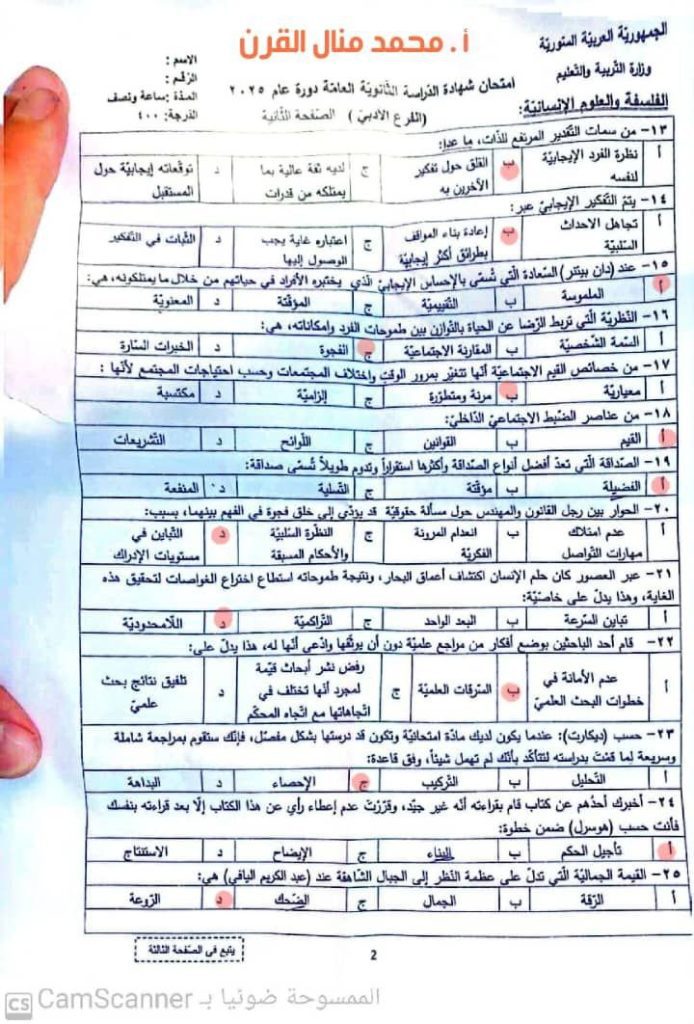 أ. محمد منال القرن
الجمهوريّة العربيّة السّوريّة
وزارة التّربية والتّعليم
امتحان شهادة الدّراسة الثّانويّة العامّة دورة عام ٢٠٢٥
(الفرع الأدبيّ) الصّفحة الثّانية
الاسم :
الرّقم :
المدّة : ساعة ونصف
الدرجة: ٤٠٠
الفلسفة والعلوم الإنسانيّة:
١٣- من سمات التّقدير المرتفع للذّات، ما عدا:
أ نظرة الفرد الإيجابيّة لنفسه ب القلق حول تفكير الآخرين به ج لديه ثقة عالية بما يمتلكه من قدرات د توقّعاته إيجابيّة حول المستقبل
١٤- يتمّ التّفكير الإيجابيّ عبر:
أ تجاهل الاحداث السّلبيّة ب إعادة بناء المواقف بطرائق أكثر إيجابيّة ج اعتباره غاية يجب الوصول إليها د الثّبات في التّفكير
١٥- عند (دان بيتنر) السّعادة الّتي تُسمّى بالإحساس الإيجابيّ الّذي يختبره الأفراد في حياتهم من خلال ما يمتلكونه، هي:
أ الملموسة ب التّقييميّة ج المؤقّتة د المعنويّة
١٦- النّظريّة الّتي تربط الرّضا عن الحياة بالتّوازن بين طموحات الفرد وإمكاناته، هي:
أ السّمة الشّخصيّة ب المقارنة الاجتماعيّة ج الفجوة د الخبرات السّارة
١٧- من خصائص القيم الاجتماعيّة أنّها تتغيّر بمرور الوقت واختلاف المجتمعات وحسب احتياجات المجتمع لأنّها :
أ معياريّة ب مرنة ومتطوّرة ج إلزاميّة د مكتسبة
١٨- من عناصر الضّبط الاجتماعيّ الدّاخليّ:
أ القيم ب القوانين ج اللّوائح د التّشريعات
١٩- الصّداقة الّتي تعدّ أفضل أنواع الصّداقة وأكثرها استقراراً وتدوم طويلاً تُسمّى صداقة:
أ الفضيلة ب مؤقّتة ج التّسلية د المنفعة
٢٠- الحوار بين رجل القانون والمهندس حول مسألة حقوقيّة قد يؤدّي إلى خلق فجوة في الفهم بينهما، بسبب:
أ عدم امتلاك مهارات التّواصل ب انعدام المرونة الفكريّة ج النّظرة السّلبيّة والأحكام المسبقة د التّباين في مستويات الإدراك
٢١- عبر العصور كان حلم الإنسان اكتشاف أعماق البحار، ونتيجة طموحاته استطاع اختراع الغواصات لتحقيق هذه
الغاية، وهذا يدلّ على خاصيّة:
أ تباين السّرعة ب البعد الواحد ج التّراكميّة د اللّامحدوديّة
٢٢- قام أحد الباحثين بوضع أفكار من مراجع علميّة دون أن يوثّقها وادّعى أنّها له، هذا يدلّ على:
أ عدم الأمانة في خطوات البحث العلميّ ب السّرقات العلميّة ج رفض نشر أبحاث قيّمة لمجرد أنّها تختلف في اتّجاهاتها مع اتّجاه المحكّم د تلفيق نتائج بحث علميّ
٢٣- حسب (ديكارت): عندما يكون لديك مادّة امتحانيّة وتكون قد درستها بشكل مفصّل، فإنّك ستقوم بمراجعة شاملة
وسريعة لما قمْتَ بدراسته لتتأكّد بأنّك لم تهمل شيئاً، وفق قاعدة:
أ التّحليل ب التّركيب ج الإحصاء د البداهة
٢٤- أخبرك أحدهم عن كتاب قام بقراءته أنّه غير جيّد، وقرّرْتَ عدم إعطاء رأي عن هذا الكتاب إلّا بعد قراءته بنفسك
فأنت حسب (هوسرل) ضمن خطوة:
أ تأجيل الحكم ب البناء ج الإيضاح د الاستنتاج
٢٥- القيمة الجماليّة الّتي تدلّ على عظمة النّظر إلى الجبال الشّاهقة عند (عبد الكريم اليافي) هي:
أ الرّقة ب الجمال ج الضّحك د الرّوعة
2
يتبع في الصّفحة الثّالثة
CS CamScanner الممسوحة ضوئيا بـ